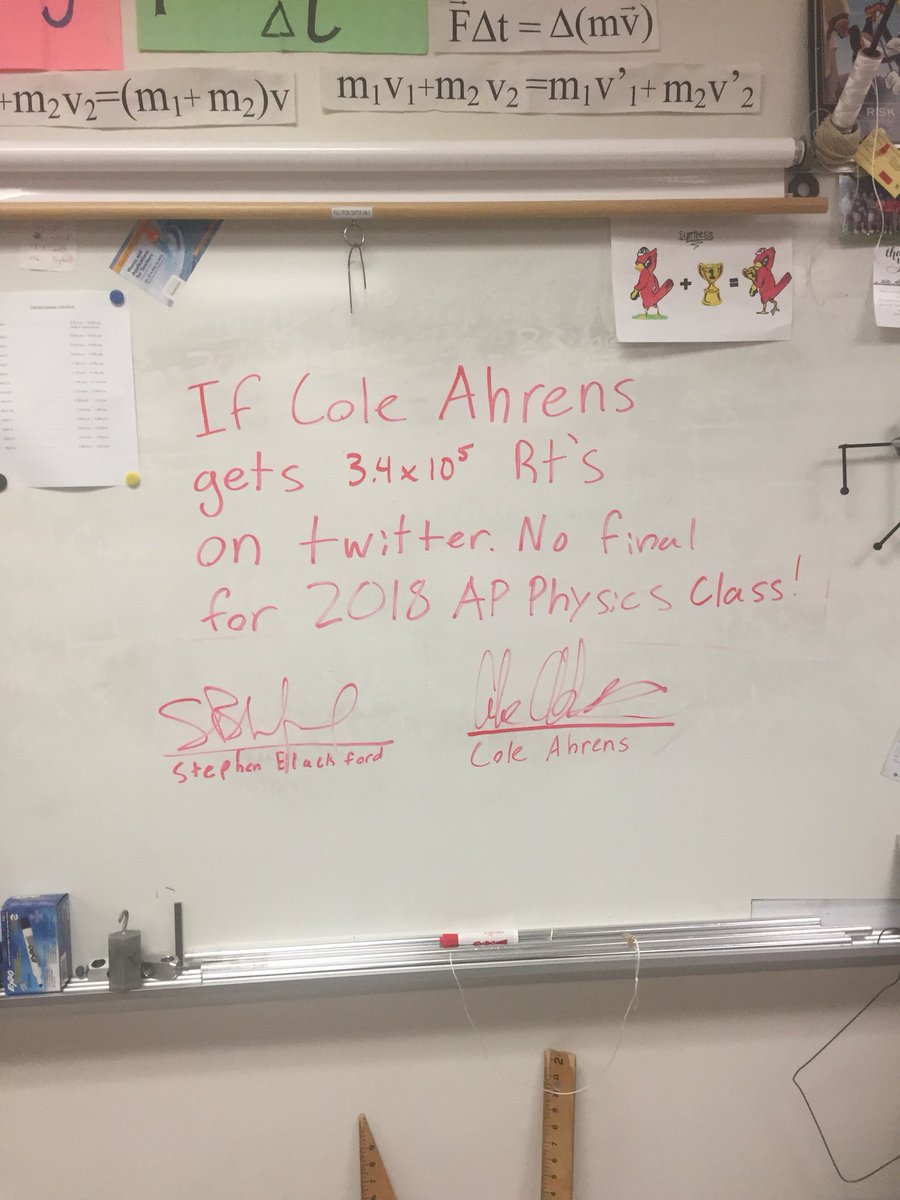 Δt
F⃗Δt = Δ(mv⃗)
+m₂v₂=(m₁+ m₂)v
m₁v₁+m₂ v₂ =m₁v’₁+ m₂v’₂
RISK
PULL FROM CENTER ONLY
Synthesis
+ 1 =
If Cole Ahrens
gets 3.4x10⁵ Rt's
on twitter. No final
for 2018 AP Physics Class!
Stephen Blackford
Cole Ahrens
EXPO